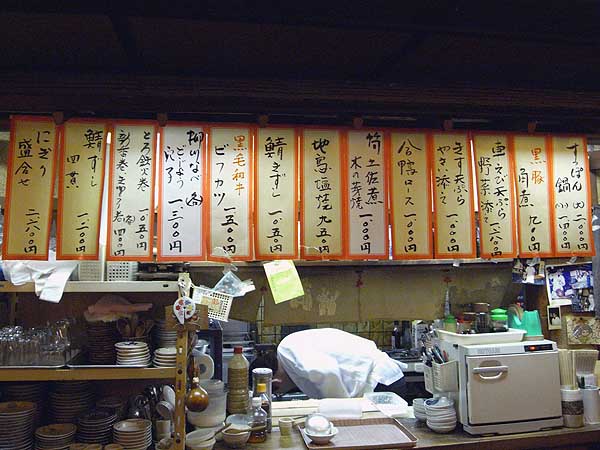 すっぽん
鍋(小)一、四〇〇円
黒豚
角煮
九〇〇円
車えび天ぷら
野菜添え
きす天ぷら
やさい添え
一、〇〇〇円
合鴨ロース
一、〇〇〇円
筍土佐煮
木の芽焼
一、〇〇〇円
地鳥塩焼
九五〇円
鯖きずし
一、〇五〇円
黒毛和牛
ビフカツ
一、五〇〇円
柳川なべ
どじょう
一、三〇〇円
とろ鉄火巻
一、〇五〇円
鯖ずし
四貫
一、二〇〇円
にぎり
盛合せ
二、六〇〇円